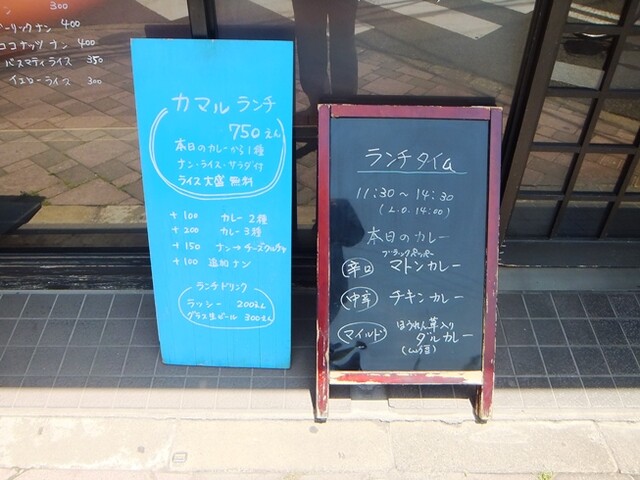 300
ガーリックナン 400
ココナッツナン 400
バスマティライス 350
イエローライス 300
カマル ランチ
750えん
本日のカレーから1種
ナン・ライス・サラダ付
ライス大盛 無料
+100 カレー2種
+200 カレー3種
+150 ナン→チーズクルチャ
+100 追加ナン
ランチドリンク
ラッシー 200えん
グラス生ビール 300えん
ランチタイム
11:30～14:30
(L.O.14:00)
本日のカレー
ブラックペッパー
辛口 マトンカレー
中辛 チキンカレー
マイルド ほうれん草入り
ダルカレー